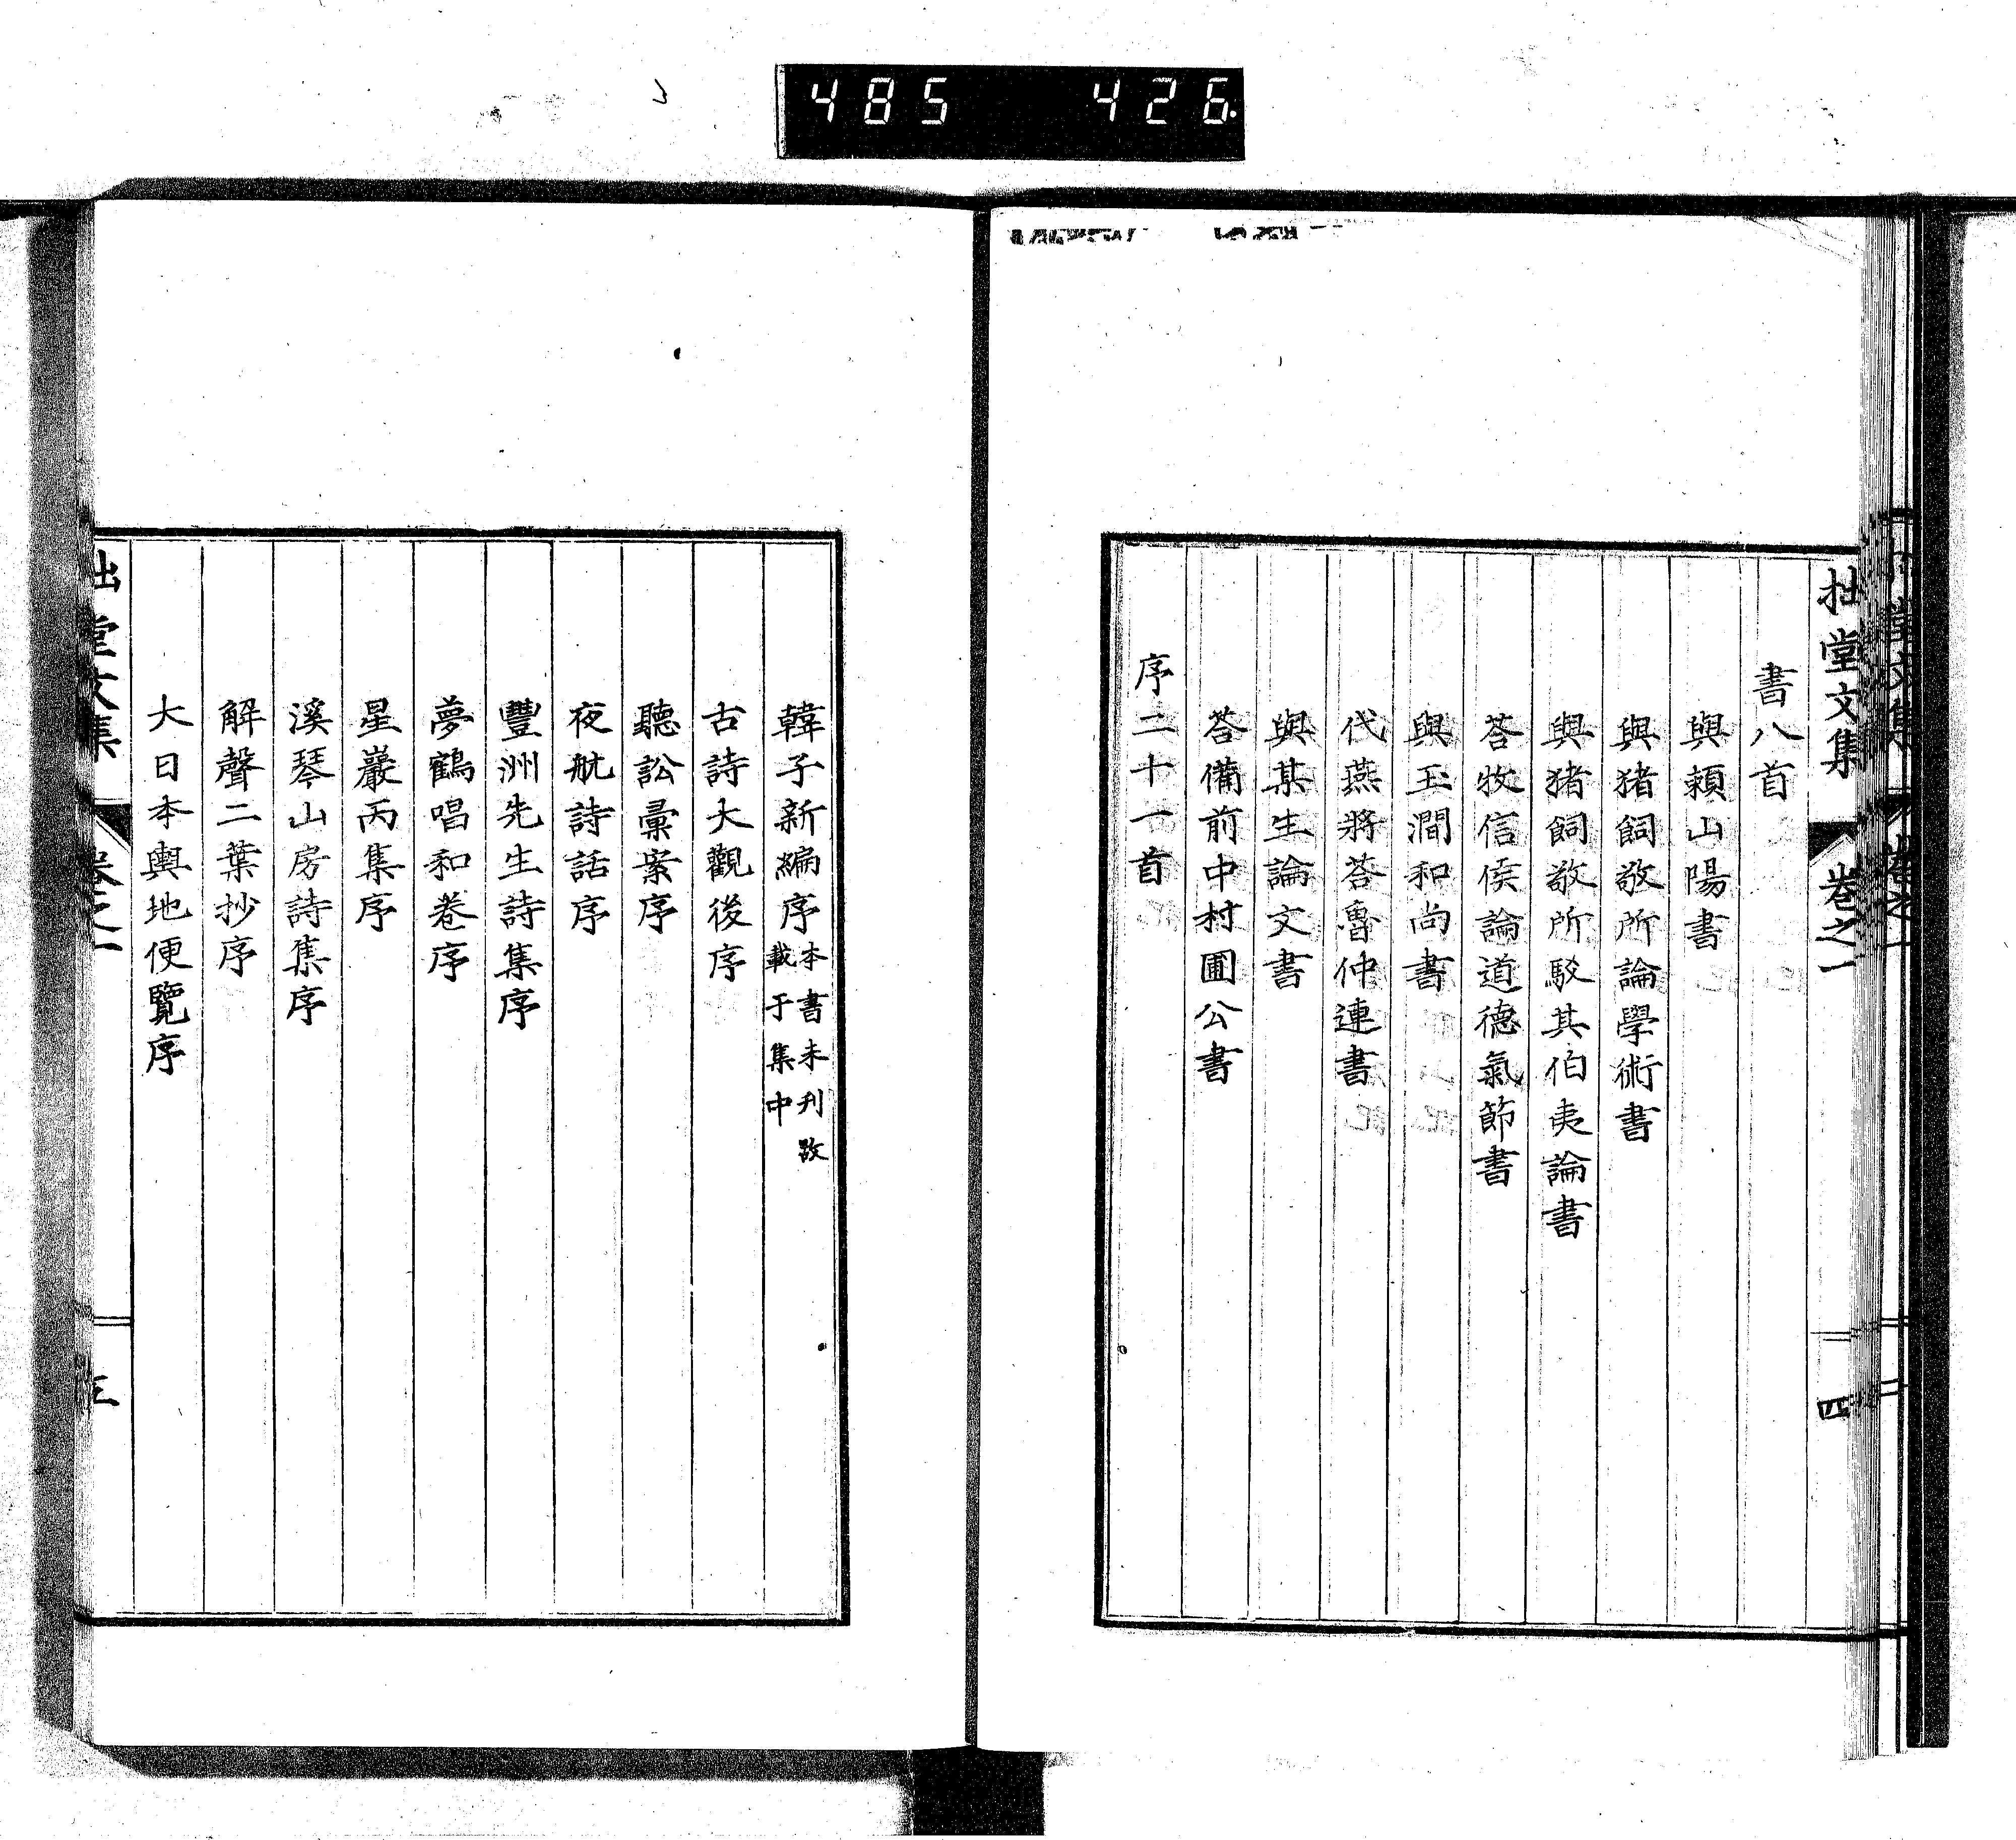 485 426
拙堂文集 卷之一 四
書八首
與賴山陽書
與猪飼敬所論學術書
與猪飼敬所駁其伯夷論書
荅牧信侯論道德氣節書
與玉澗和尚書
代燕將荅魯仲連書
與某生論文書
荅備前中村圃公書
序二十一首
韓子新編序本書未刋故載于集中
古詩大觀後序
聽訟彙案序
夜航詩話序
豐洲先生詩集序
夢鶴唱和卷序
星巖丙集序
溪琴山房詩集序
解聲二葉抄序
大日本輿地便覽序
拙堂文集 卷之一 三